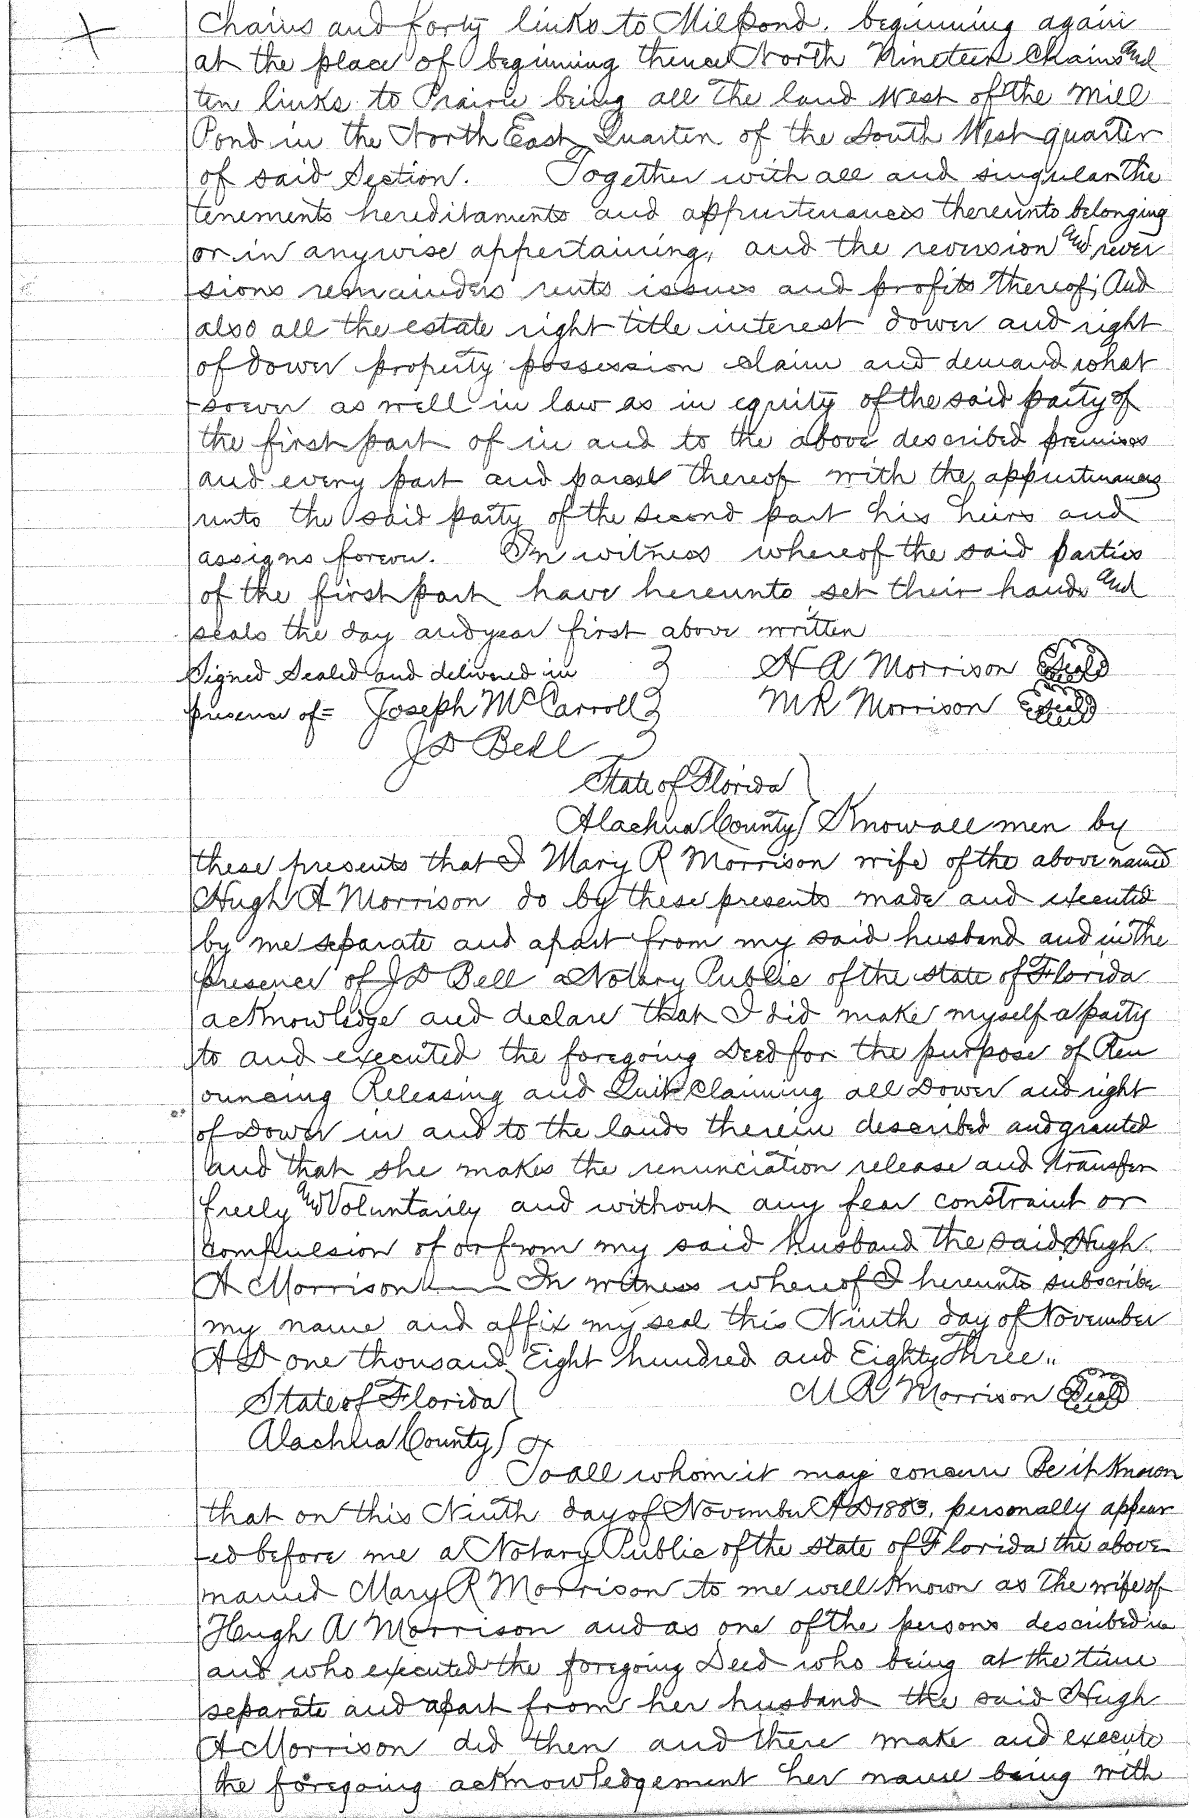 Chains and forty links to Milpond. beginning again
at the place of beginning thence North Nineteen Chains and
ten links to Prairie being all the land West of the Mill
Pond in the North East Quarter of the South West quarter
of said Section. Together with all and singular the
tenements hereditaments and appurtenances thereunto belonging
or in anywise appertaining, and the reversion and rever
sions remainders rents issues and profits thereof; And
also all the estate right title interest dower and right
of dower property possession claim and demand what
soever as well in law as in equity of the said party of
the first part of in and to the above described premises
and every part and parcel thereof with the appurtenances
unto the said party of the second part his heirs and
assigns forever. In witness whereof the said parties
of the first part have hereunto set their hands and
seals the day and year first above written
Signed Sealed and delivered in } H A Morrison Seal
presence of = Joseph McCarroll } M R Morrison Seal
J D Bell }
State of Florida }
Alachua County } Know all men by
these presents that I Mary R Morrison wife of the above named
Hugh A Morrison do by these presents made and executed
by me separate and apart from my said husband and in the
presence of J D Bell a Notary Public of the state of Florida
acknowledge and declare that I did make myself a party
to and executed the foregoing Deed for the purpose of Ren
ouncing Releasing and Quit Claiming all Dower and right
of Dower in and to the lands therein described and granted
and that she makes the renunciation release and transfer
freely and Voluntarily and without any fear constraint or
compulsion of or from my said husband the said Hugh
A Morrison In witness whereof I hereunto subscribe
my name and affix my seal this Ninth day of November
A D one thousand Eight hundred and Eighty Three..
State of Florida } M R Morrison Seal
Alachua County }
To all whom it may concern Be it Known
that on this Ninth day of November A D 1883. personally appear
ed before me a Notary Public of the state of Florida the above
named Mary R Morrison to me well Known as the wife of
Hugh A Morrison and as one of the persons described in
and who executed the foregoing Deed who being at the time
separate and apart from her husband the said Hugh
A Morrison did then and there make and execute
the foregoing acknowledgement her name being with